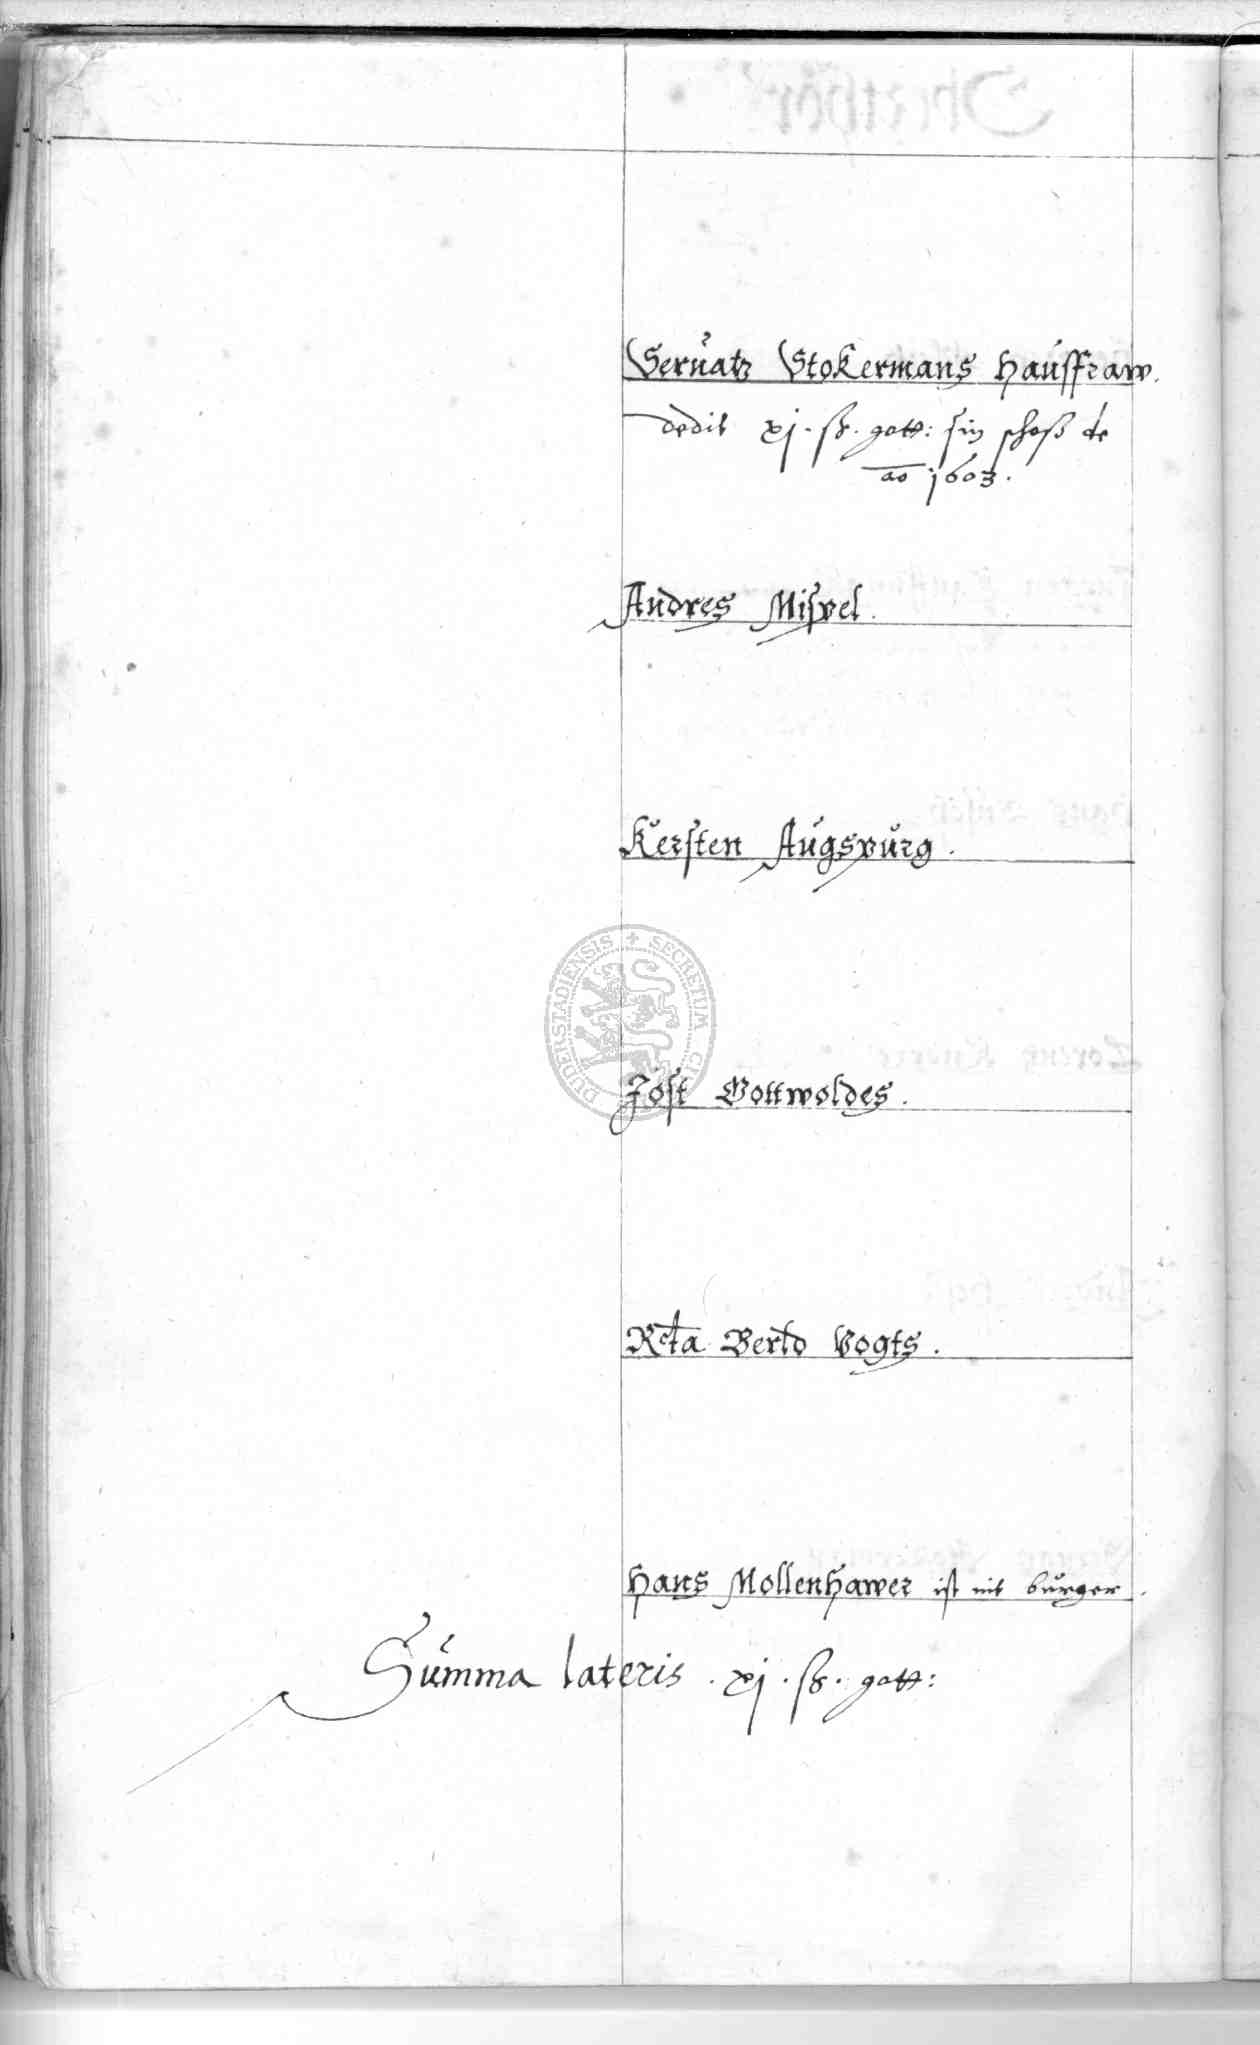 Seruatz Stokermans Hausfraw.
dedit xj. ß. gott: sin schoß de
ao 1603.
Andres Mispel.
Kersten Augspurg.
DUDERSTADIENSIS + SECRETUM CI
Jost Gottwoldes.
Rcta Berld Vogts.
Hans Mollenhawer ist nit burger.
Summa lateris. xj. ß. gott: